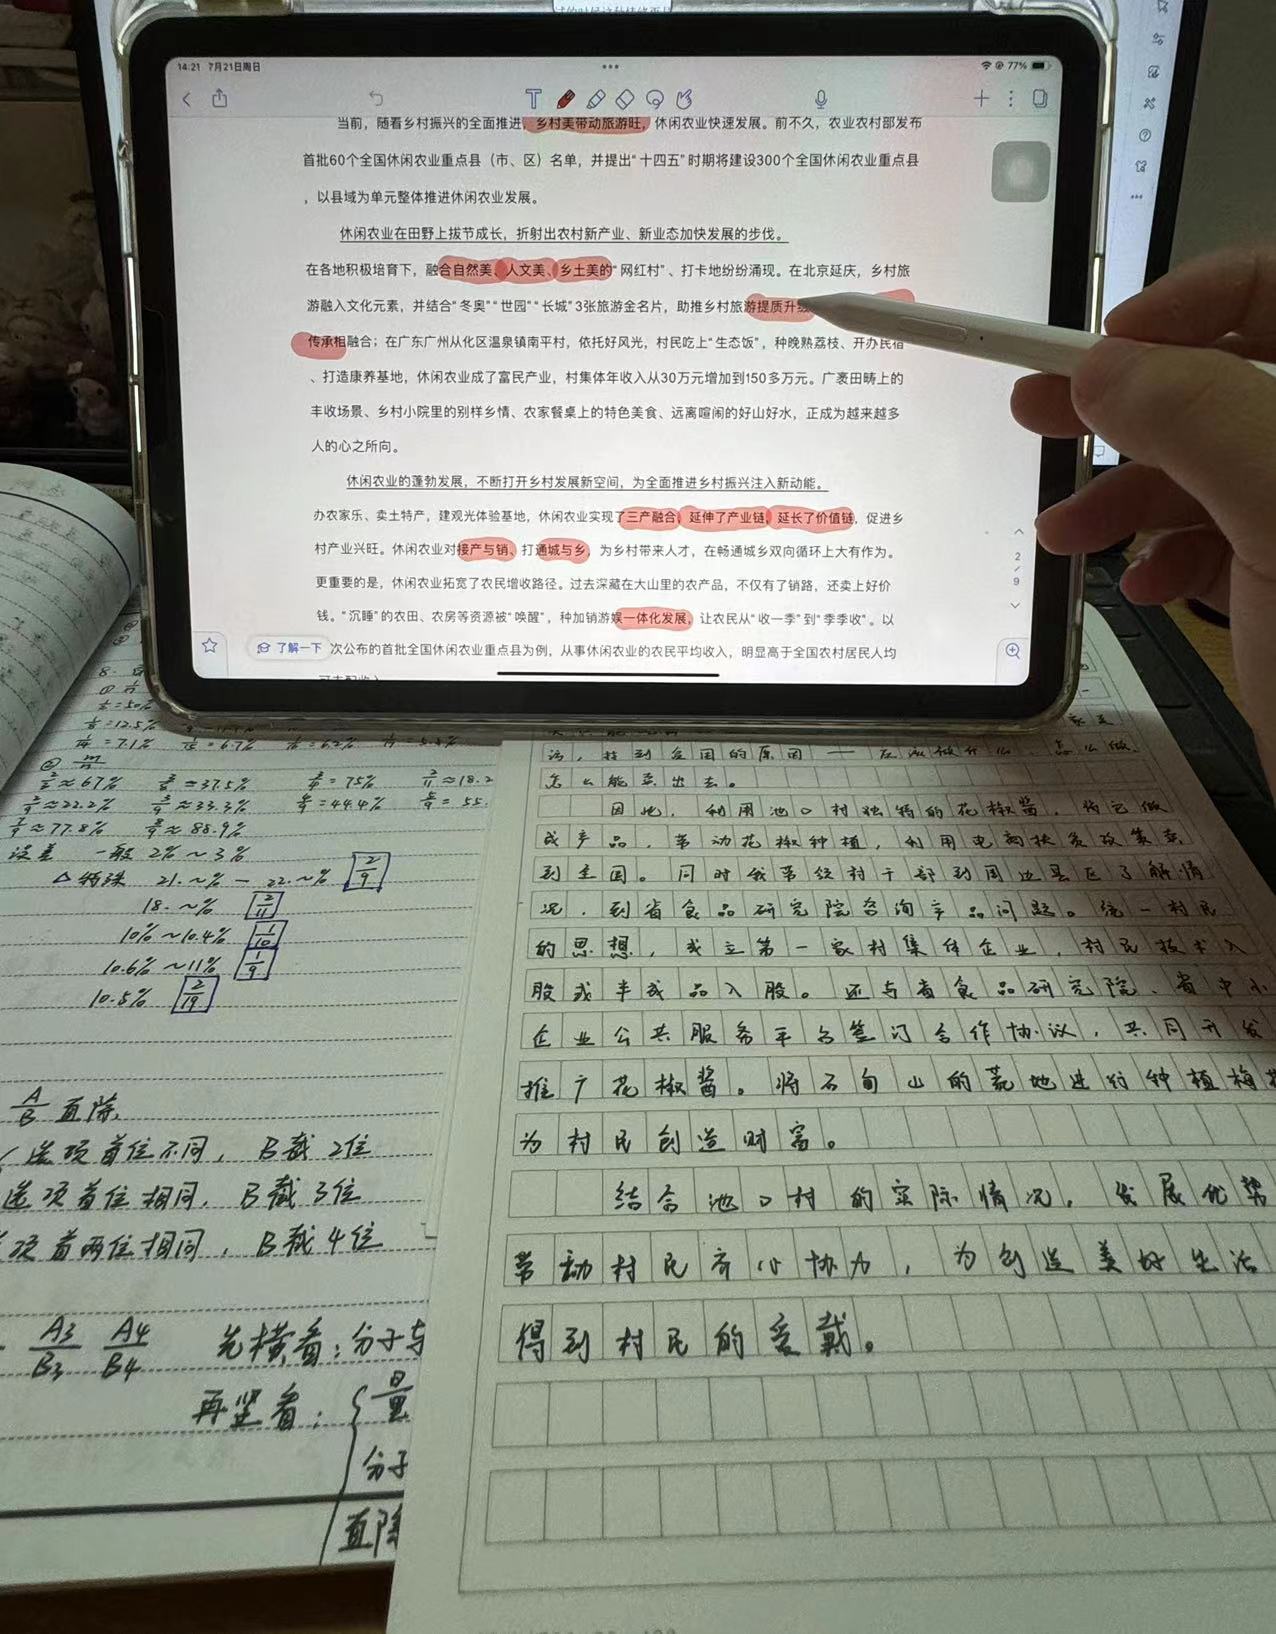 14:21 7月21日周日
77%
当前，随看乡村振兴的全面推进，乡村美带动旅游旺，休闲农业快速发展。前不久，农业农村部发布
首批60个全国休闲农业重点县（市、区）名单，并提出“十四五”时期将建设300个全国休闲农业重点县
，以县域为单元整体推进休闲农业发展。
休闲农业在田野上拔节成长，折射出农村新产业、新业态加快发展的步伐。
在各地积极培育下，融合自然美、人文美、乡土美的“网红村”、打卡地纷纷涌现。在北京延庆，乡村旅
游融入文化元素，并结合“冬奥”“世园”“长城”3张旅游金名片，助推乡村旅游提质升级
传承相融合；在广东广州从化区温泉镇南平村，依托好风光，村民吃上“生态饭”，种晚熟荔枝、开办民宿
、打造康养基地，休闲农业成了富民产业，村集体年收入从30万元增加到150多万元。广袤田畴上的
丰收场景、乡村小院里的别样乡情、农家餐桌上的特色美食、远离喧闹的好山好水，正成为越来越多
人的心之所向。
休闲农业的蓬勃发展，不断打开乡村发展新空间，为全面推进乡村振兴注入新动能。
办农家乐、卖土特产，建观光体验基地，休闲农业实现了三产融合，延伸了产业链，延长了价值链，促进乡
村产业兴旺。休闲农业对接产与销、打通城与乡，为乡村带来人才，在畅通城乡双向循环上大有作为。
更重要的是，休闲农业拓宽了农民增收路径。过去深藏在大山里的农产品，不仅有了销路，还卖上好价
钱。“沉睡”的农田、农房等资源被“唤醒”，种加销游娱一体化发展，让农民从“收一季”到“季季收”。以
了解一下
次公布的首批全国休闲农业重点县为例，从事休闲农业的农民平均收入，明显高于全国农村居民人均
2
9
1/2=50%
1/8=12.5%
1/14=7.1% 1/15=6.7% 1/16=6.2%
② m/n
2/3≈67% 3/8=37.5% 3/4=75% 2/11≈18.2
2/9≈22.2% 3/9≈33.3% 4/9=44.4% 5/9=55.
7/9≈77.8% 8/9≈88.9%
误差 一般 2%～3%
△特殊 21.~%－22.~% 2/9
18.~% 2/11
10%～10.4% 1/10
10.6%～11% 1/9
10.5% 2/19
A/B 直除
选项首位不同，B截2位
选项首位相同，B截3位
项首两位相同，B截4位
A3/B3 A4/B4 先横看：分子与
再竖看：量
分子
直除
活，找到贫困的原因——应该做什么、怎么做、
怎么能卖出去。
因此，利用池口村独特的花椒酱，将它做
成产品，带动花椒种植，利用电商扶贫政策卖
到全国。同时我带领村干部到周边县区了解情
况，到省食品研究院咨询产品问题。统一村民
的思想，成立第一家村集体企业，村民技术入
股或半成品入股。还与省食品研究院、省中小
企业公共服务平台签订合作协议，共同开发
推广花椒酱。将石旬山的荒地进行种植梅
为村民创造财富。
结合池口村的实际情况，发展优势
带动村民齐心协力，为创造美好生活
得到村民的爱戴。